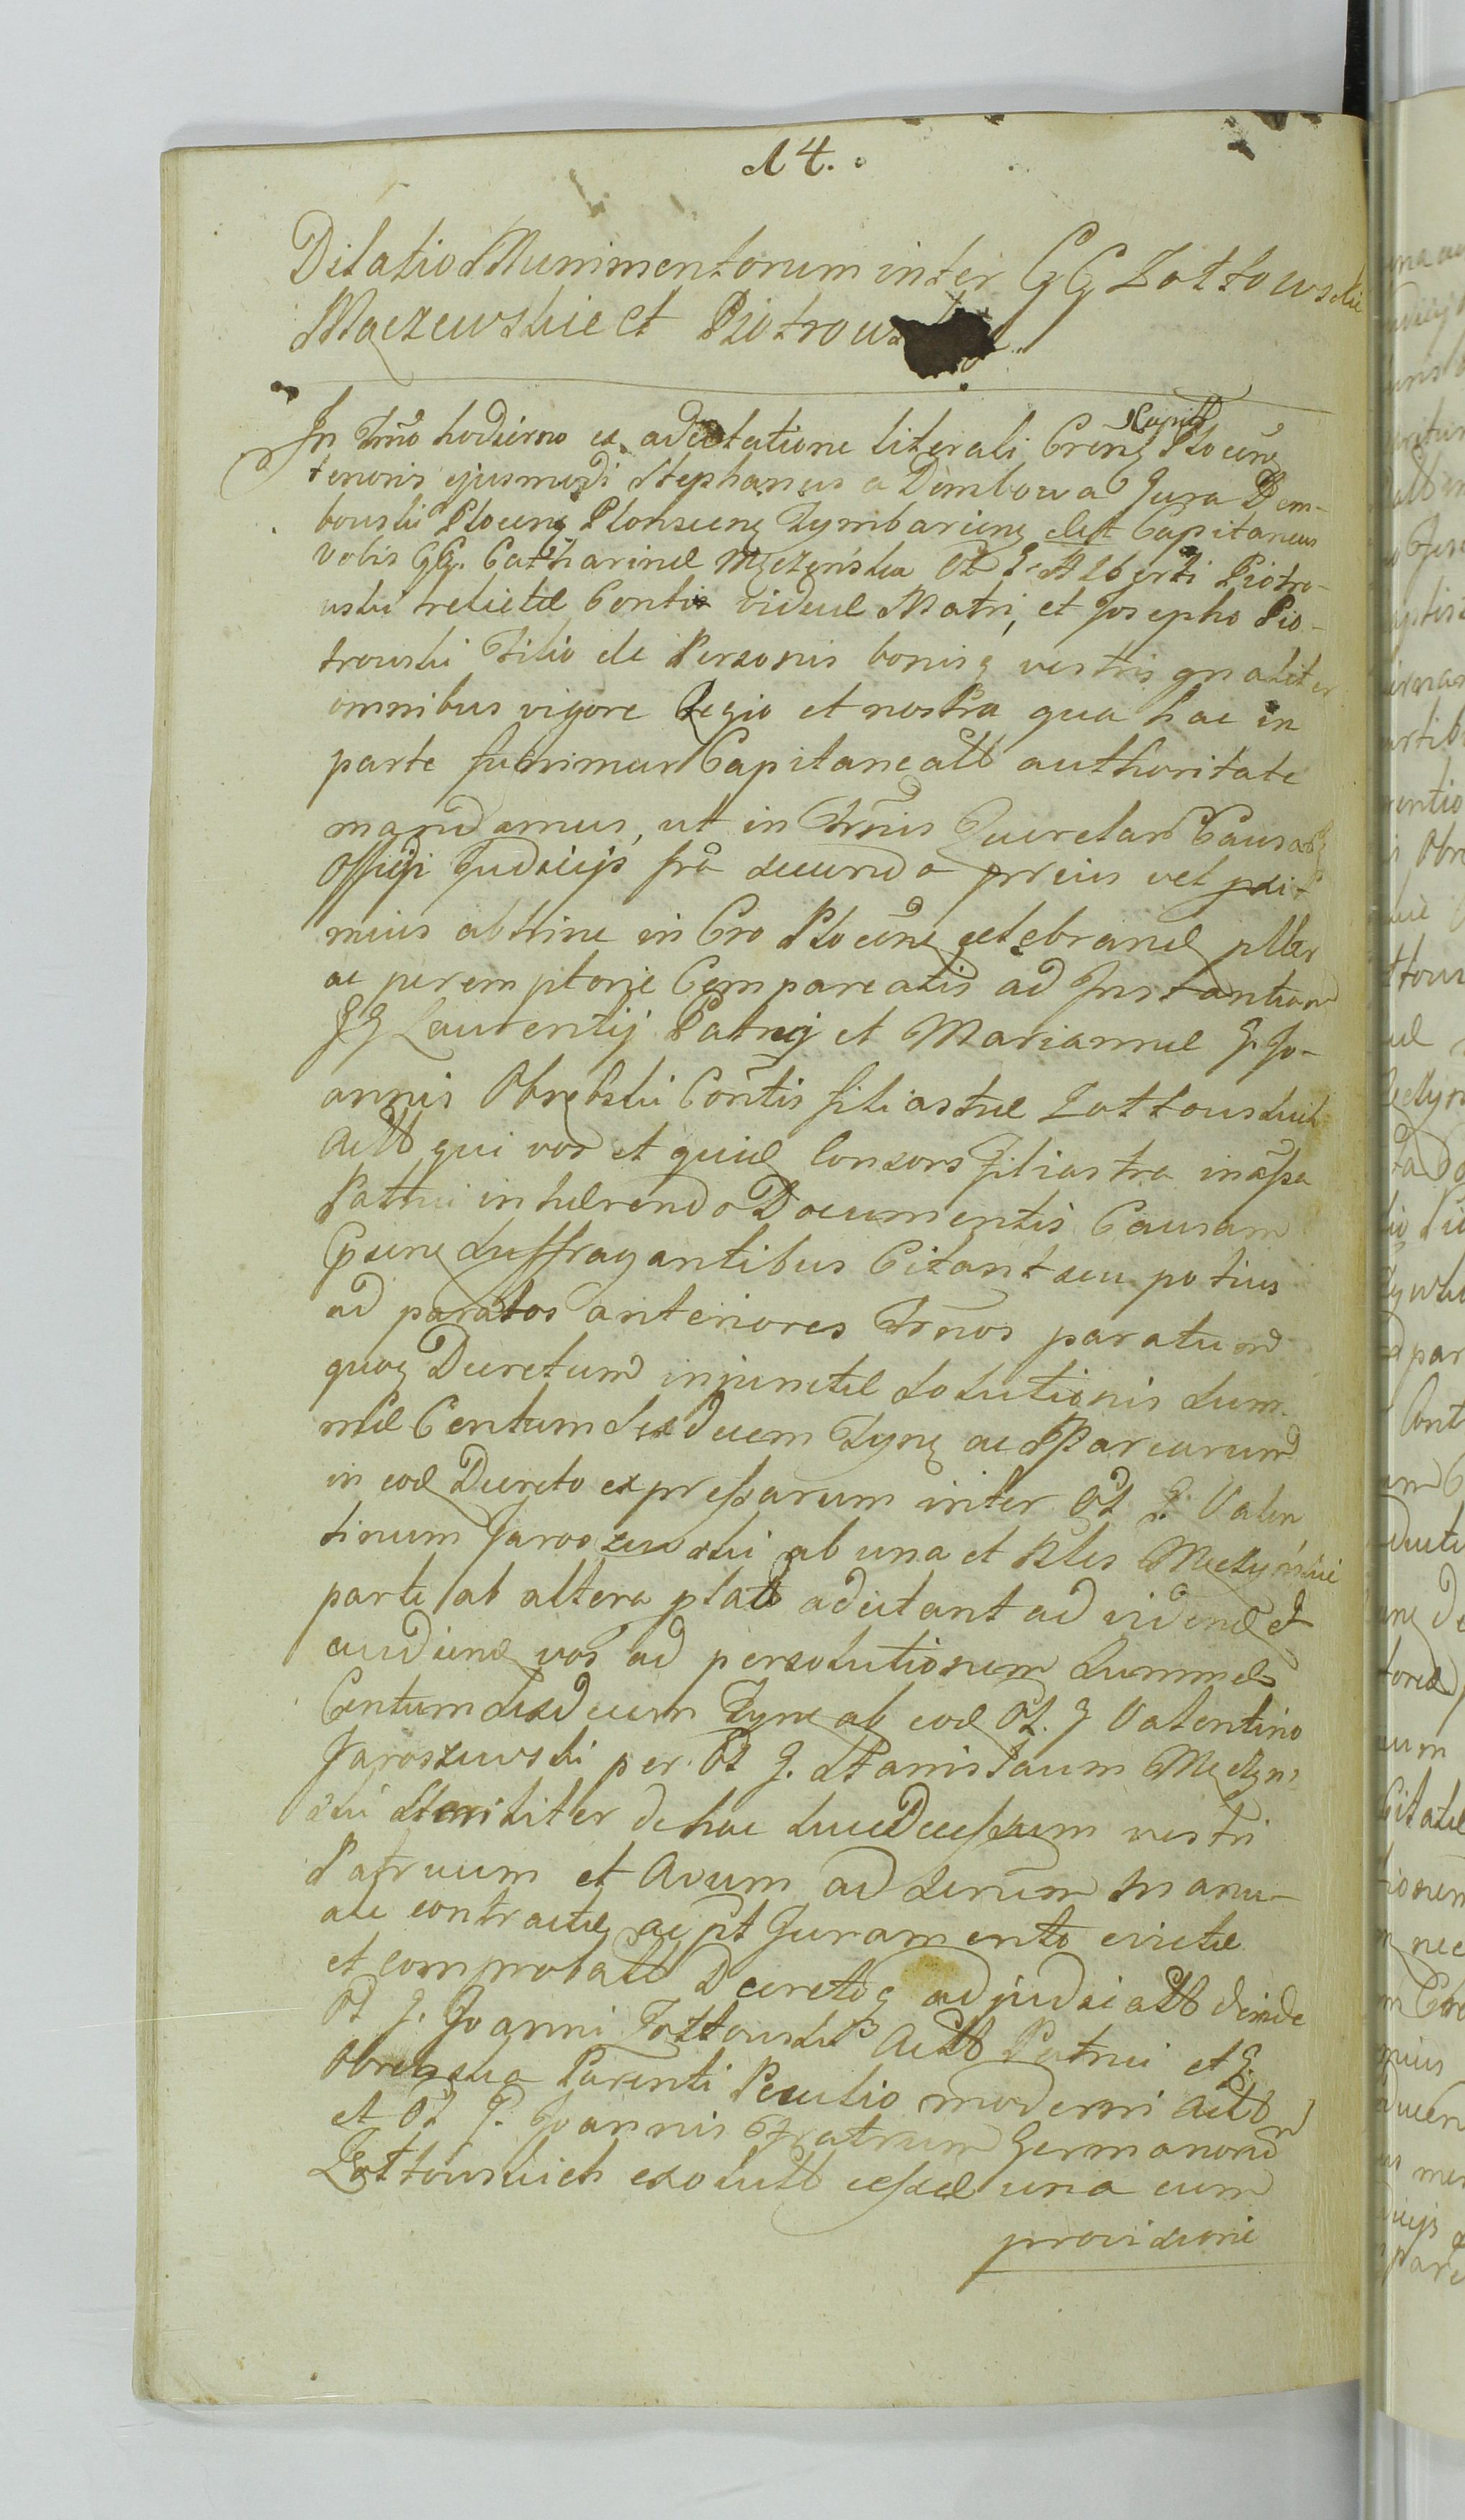 14.
Dilatio Munimentorum inter GG Zottowskie
Mączewskie et Piotrows
In Trno hodierno ex adcitatione literali Crens Capitli Plocens
tenoris ejusmodi Stephanus a Dembowa Gura Dem-
bowski Plocens Plonscens Tymbariens etct Capitaneus
Vobis GG. Catharinæ Męczeńska Ol G. Alberti Piotro-
wski relictæ Contis viduæ Matri, et Josepho Pio-
trowski Filio de Personis bonisq vestris gnaliter
omnibus vigore Regio et nostra qua hac in
parte fungimur Capitaneali authoritate
mandamus, ut in Trnis Querelar Causarq
Officij Judicijs fra secunda prius vel proxi-
mius abhinc in Cro Plocens celebrand pller
ac peremptorie Compareatis ad Instantiam
GG Laurentij Patrui et Mariannæ G. Jo-
annis Obrębski Contis filiastræ Zottowskich
Act qui vos et quid Consors filiastra in assa
Patrui inhærendo Documentis Causam
Gsene Suffragantibus Citant seu potius
ad paratos anteriores Trnos paratum
quoq Decretum injunctæ Solutionis Sum-
mæ Centum Sexdecem Tyns ac Parcarum
in eod Decreto expressarum inter Ol G. Valen
tinum Jaroszewski ab una et Ples Męczyńskie
parte ab altera plat adcitant ad videnð et
audienð vos ad persolutionem Summæ
Centum Sexdecim Tyns ab eod Ol. G Valentino
Jaroszewski per Ol G. Stanislaum Męczyn
ski Steriliter de hac Luce Decessum vestri
Patruum et Avum ad Scrum manu-
ale contractæ ac pt Juramento evictæ
et comprobatt Decretoq adjudicatt deinde
Ol G. Joanni Zottowski Actt Patrui et G.
Obrębska Parenti Peculio moderni Actt
et Ol G. Joannis Fratrum Germanorum
Zottowskich exolutt cessæ una cum
provisione